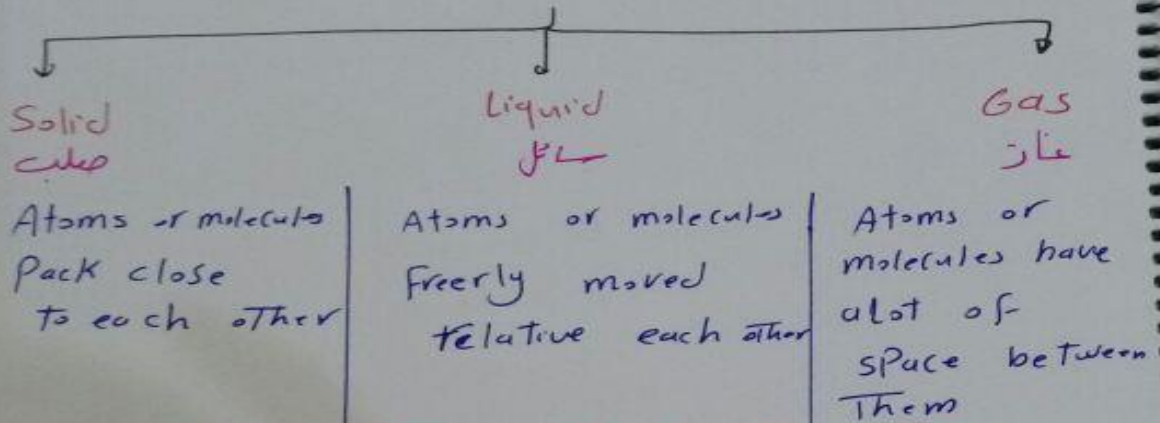 Solid
صلب
Atoms or molecules
Pack close
to each other
Liquid
سائل
Atoms or molecules
Freerly moved
relative each other
Gas
غاز
Atoms or
molecules have
alot of
space between
Them